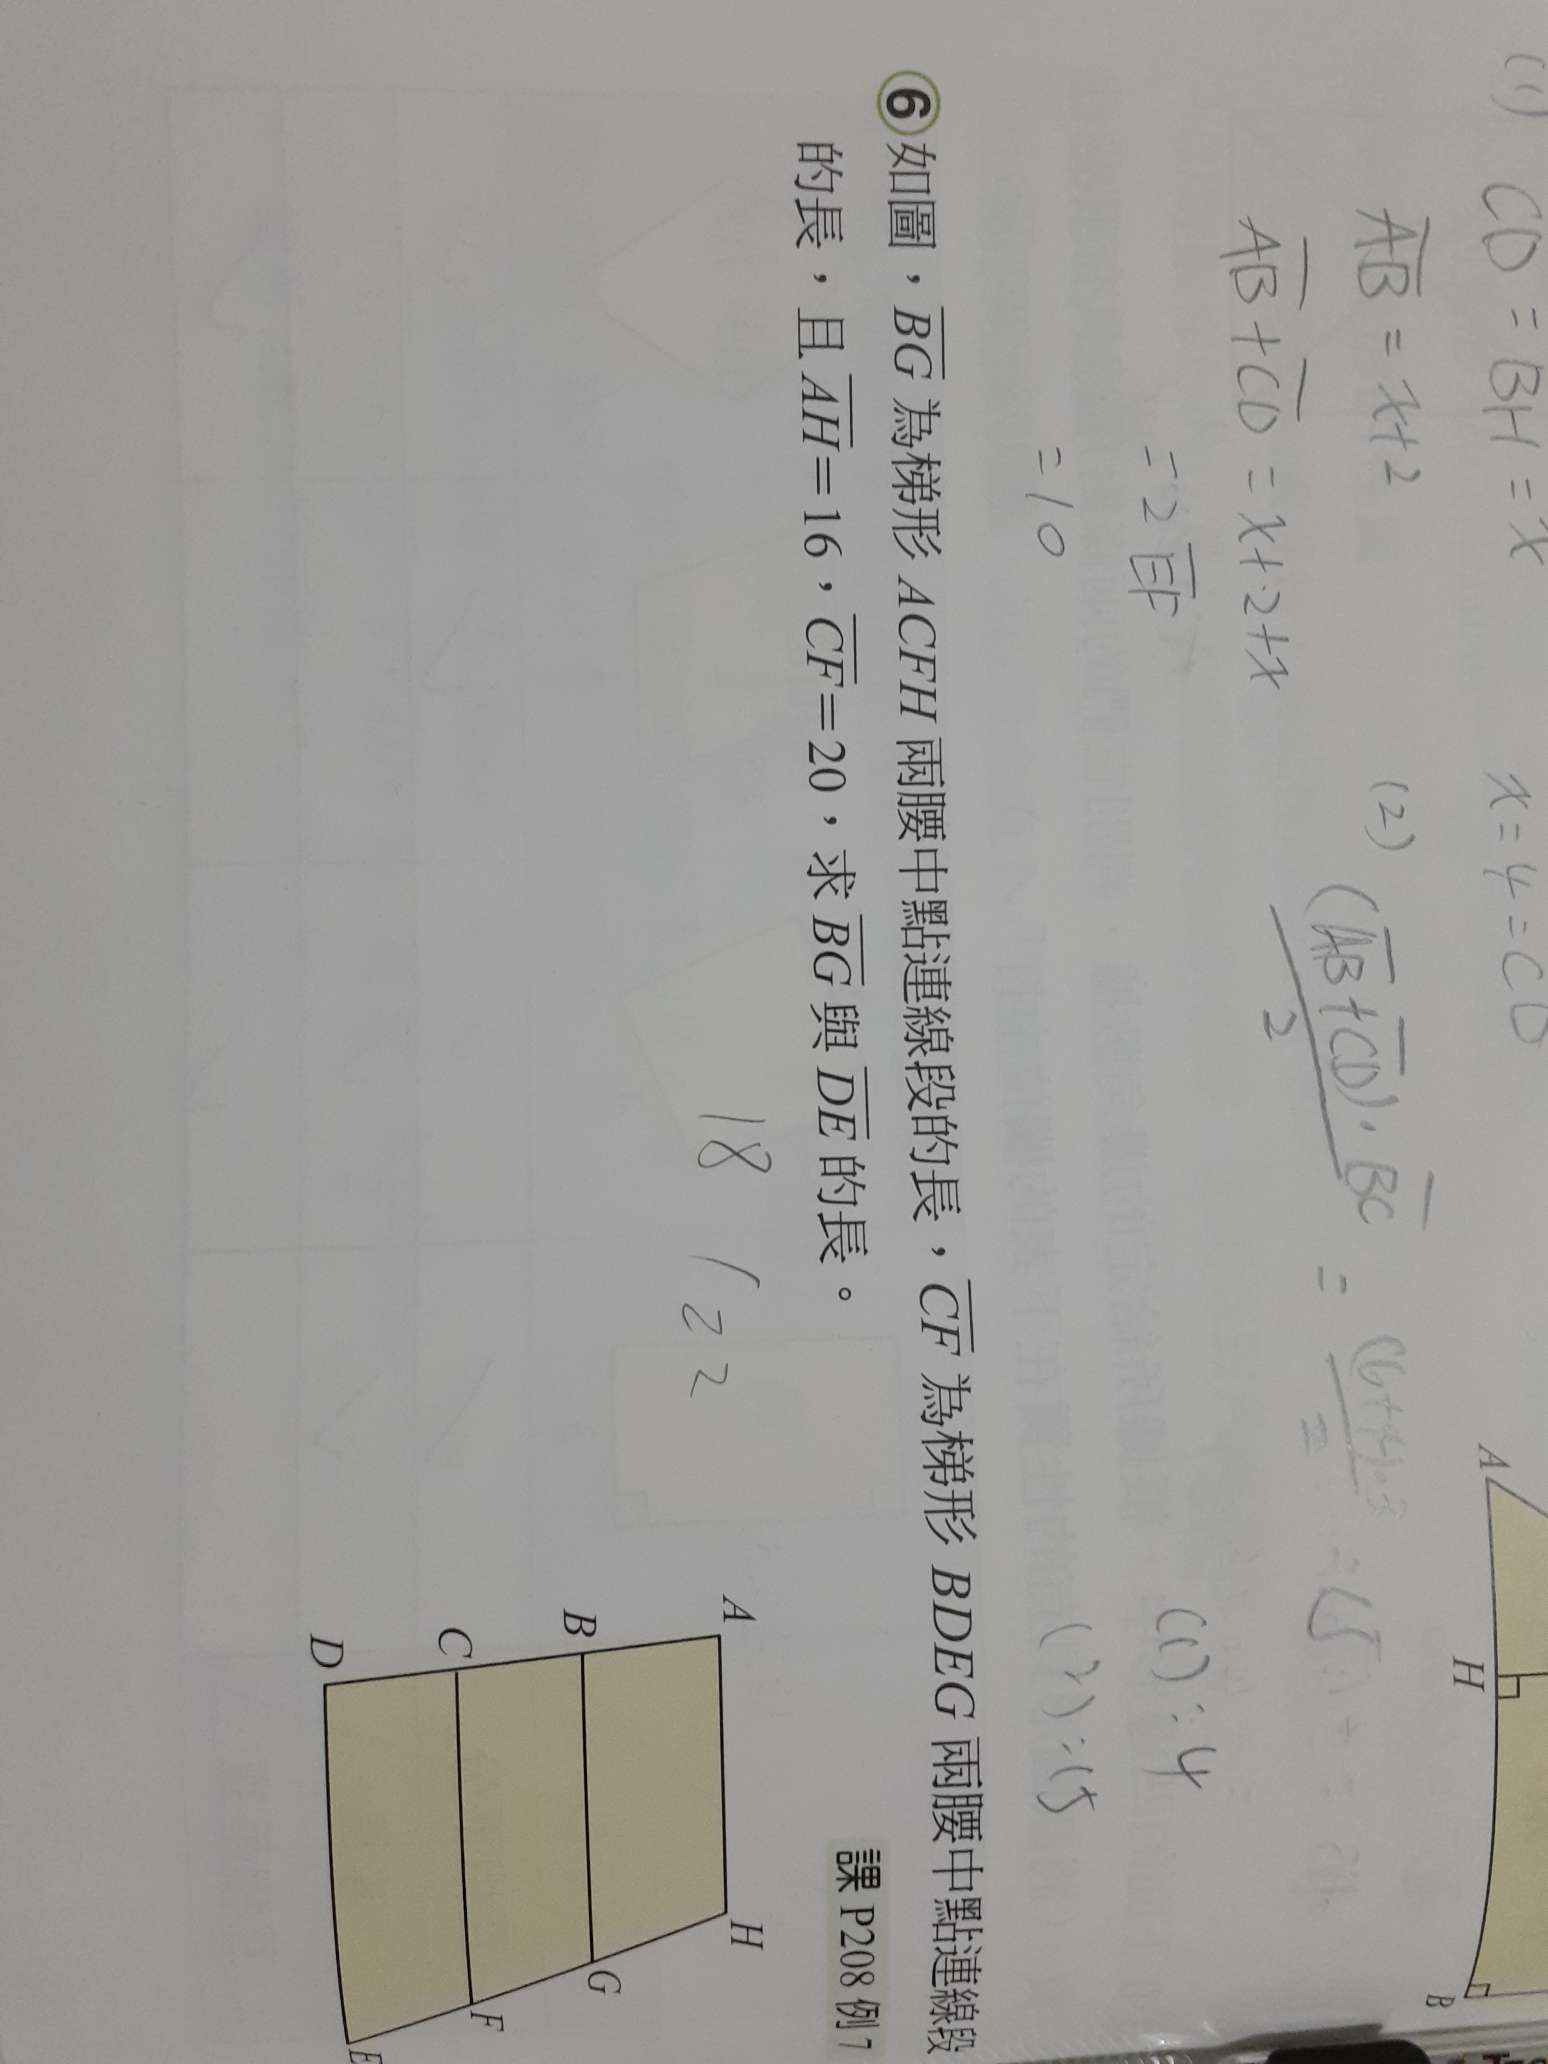 (1) CD = BH = x
x = 4 = CD
AB = x+2
AB + CD = x+2+x
= 2EF
= 10
(2) (AB+CD)·BC
2
=
A
H
B
(1): 4
(2): 15
6 如圖，BG 為梯形 ACFH 兩腰中點連線段的長，CF 為梯形 BDEG 兩腰中點連線段
的長，且 AH=16，CF=20，求 BG 與 DE 的長。
課 P208 例 7
18 / 22
A
H
B
G
C
F
D
E